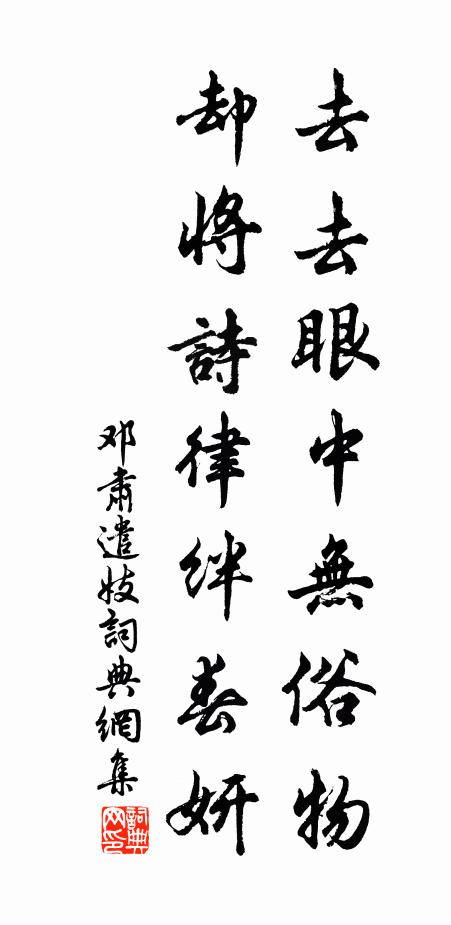 去去眼中無俗物
却將詩律絆春妍
邓肅遣妓詞典網集
詞典網印